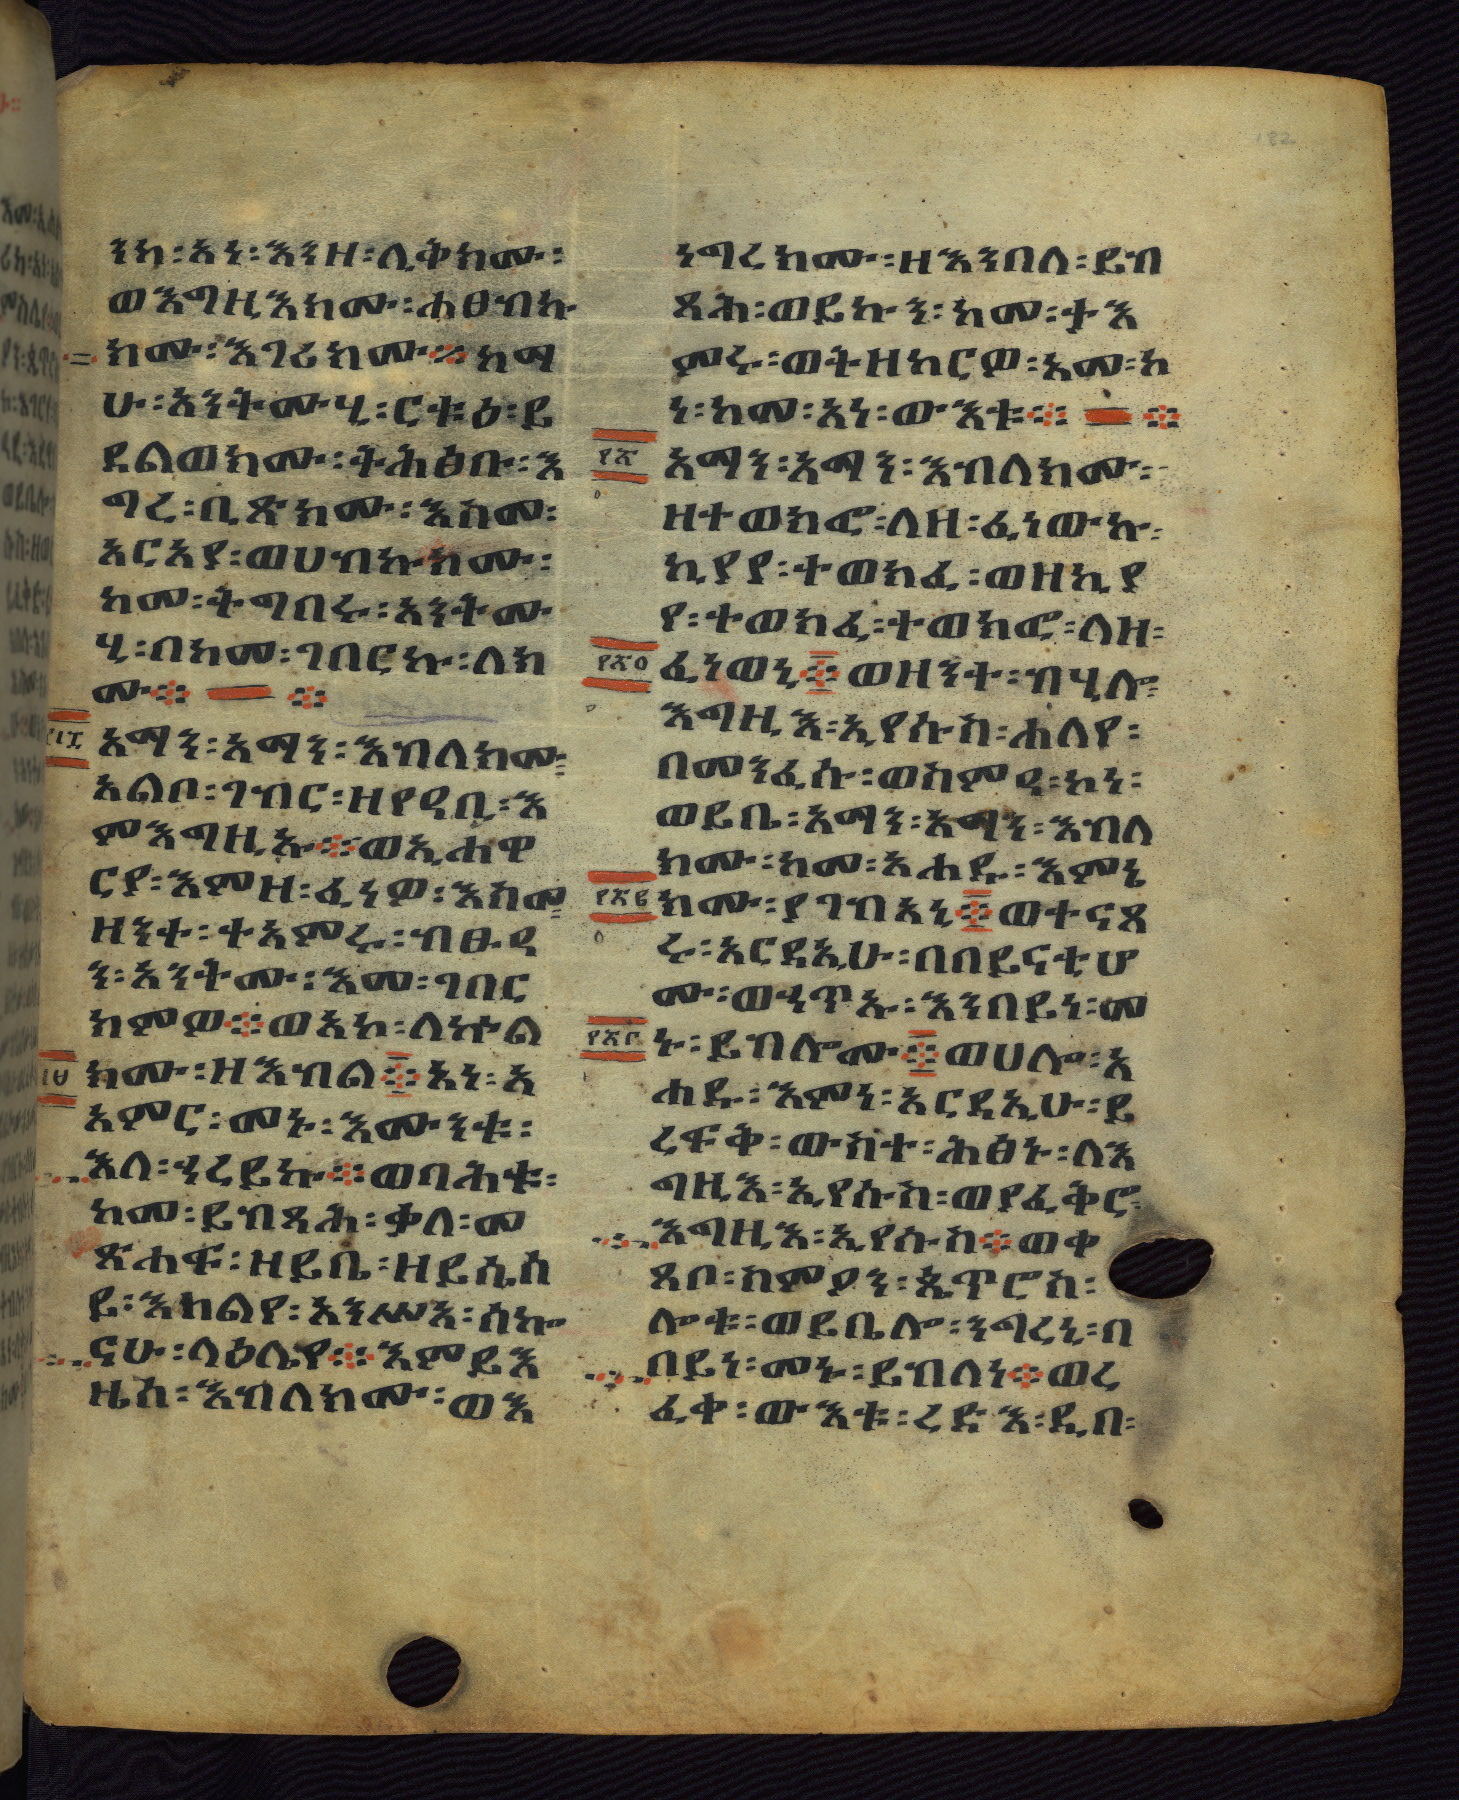 ንከ፡አነ፡እንዘ፡ሊቅክሙ፡
ወእግዚእክሙ፡ሐፀብኩ
ክሙ፡እገሪክሙ።ከማ
ሁ፡አንትሙሂ፡ርቱዕ፡ይ
ደልወክሙ፡ትሕፅቡ፡እ
ግረ፡ቢጽክሙ፡እስመ፡
አርአያ፡ወሀብኩክሙ፡
ከመ፡ትግበሩ፡አንትሙ
ሂ፡በከመ፡ገበርኩ፡ለክ
ሙ፨ ፨
አማን፡አማን፡እብለክሙ፡
አልቦ፡ገብር፡ዘየዓቢ፡እ
ምእግዚኡ፨ወኢሐዋ
ርያ፡እምዘ፡ፈነዎ፡እስመ፡
ዘንተ፡ተአምሩ፡ብፁዓ
ን፡አንትሙ፡እመ፡ገበር
ክምዎ፨ወአኮ፡ለኵል
ክሙ፡ዘእብል፨አነ፡አ
አምር፡መኑ፡እሙንቱ፡
እለ፡ኀረይኩ፨ወባሕቱ፡
ከመ፡ይብጻሕ፡ቃለ፡መ
ጽሐፍ፡ዘይቤ፡ዘይሴስ
ይ፡እክልየ፡አንሥአ፡ሰኰ
ናሁ፡ላዕሌየ፨እምይእ
ዜሰ፡እብለክሙ፡ወእ
ነግረክሙ፡ዘእንበለ፡ይብ
ጻሕ፡ወይኩን፡ከመ፡ተእ
ምሩ፡ወትዘከርዎ፡አመ፡ኮ
ነ፡ከመ፡አነ፡ውእቱ፨ ፨
አማን፡አማን፡እብለክሙ፡
ዘተወክፎ፡ለዘ፡ፈነውኩ፡
ኪያየ፡ተወክፈ፡ወዘኪያ
የ፡ተወክፈ፡ተወክፎ፡ለዘ፡
ፈነወኒ፨ወዘንተ፡ብሂሎ፡
እግዚእ፡ኢየሱስ፡ሐለየ፡
በመንፈሱ፡ወስምዓ፡ኮነ፡
ወይቤ፡አማን፡አማን፡እብለ
ክሙ፡ከመ፡አሐዱ፡እምኔ
ክሙ፡ያገብአኒ፨ወተናጸ
ሩ፡አርዳኢሁ፡በበይናቲሆ
ሙ፡ወኃጥኡ፡እንበይነ፡መ
ኑ፡ይብሎሙ፨ወሀሎ፡አ
ሐዱ፡እምነ፡አርዳኢሁ፡ይ
ረፍቅ፡ውስተ፡ሕፅኑ፡ለእ
ግዚእ፡ኢየሱስ፡ወያፈቅሮ፡
እግዚእ፡ኢየሱስ፨ወቀ
ጸቦ፡ስምዖን፡ጴጥሮስ፡
ሎቱ፡ወይቤሎ፡ንግረኒ፡በ
በይነ፡መኑ፡ይብለነ፨ወረ
ፈቀ፡ውእቱ፡ረድእ፡ዲበ፡